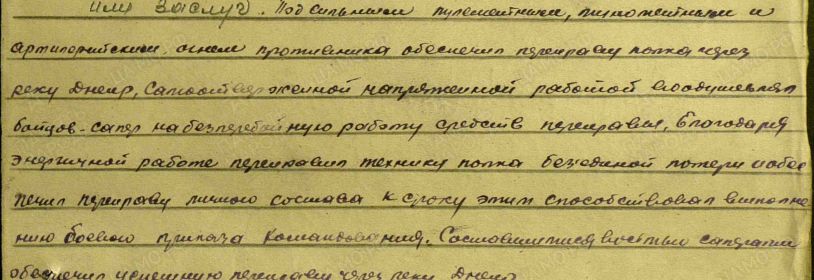 или заслуг. Под сильным пулеметным, минометным и
артилерийским огнем противника обеспечил переправу полка через
реку Днепр, Самоотверженной напряженной работой воодушевлял
бойцов-сапер на безперебойную работу средств переправы, благодаря
энергичной работе переправил технику полка без единой потери и обес
печил переправу личного состава к сроку этим способствовал выполне
нию боевого приказа Командования.
обеспечил успешную переправу через реку Днепр